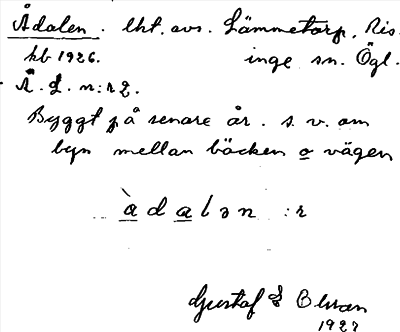 Ådalen. lht. avs. Lämmetorp, Ris-
kb 1926. inge sn. Ögl.
Ä. L. n:r 2.
Byggt på senare år. s. v. om
byn mellan bäcken o vägen
àdalən :r
Gustaf E Olsson
1927